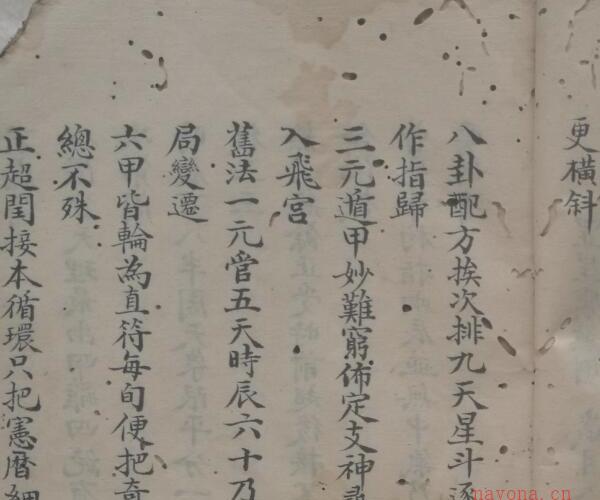 更橫斜
八卦配方挨次排九天星斗逐
作指歸
三元遁甲妙難窮佈定支神尋
入飛宮
舊法一元管五天時辰六十乃
局變遷
六甲皆輪為直符每旬便把奇
總不殊
正超閏接本循環只把憲曆細
navona.cn